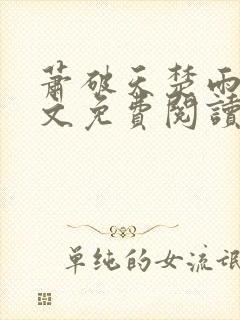 萧破天楚雨
文免費閱讀
单纯的女流氓